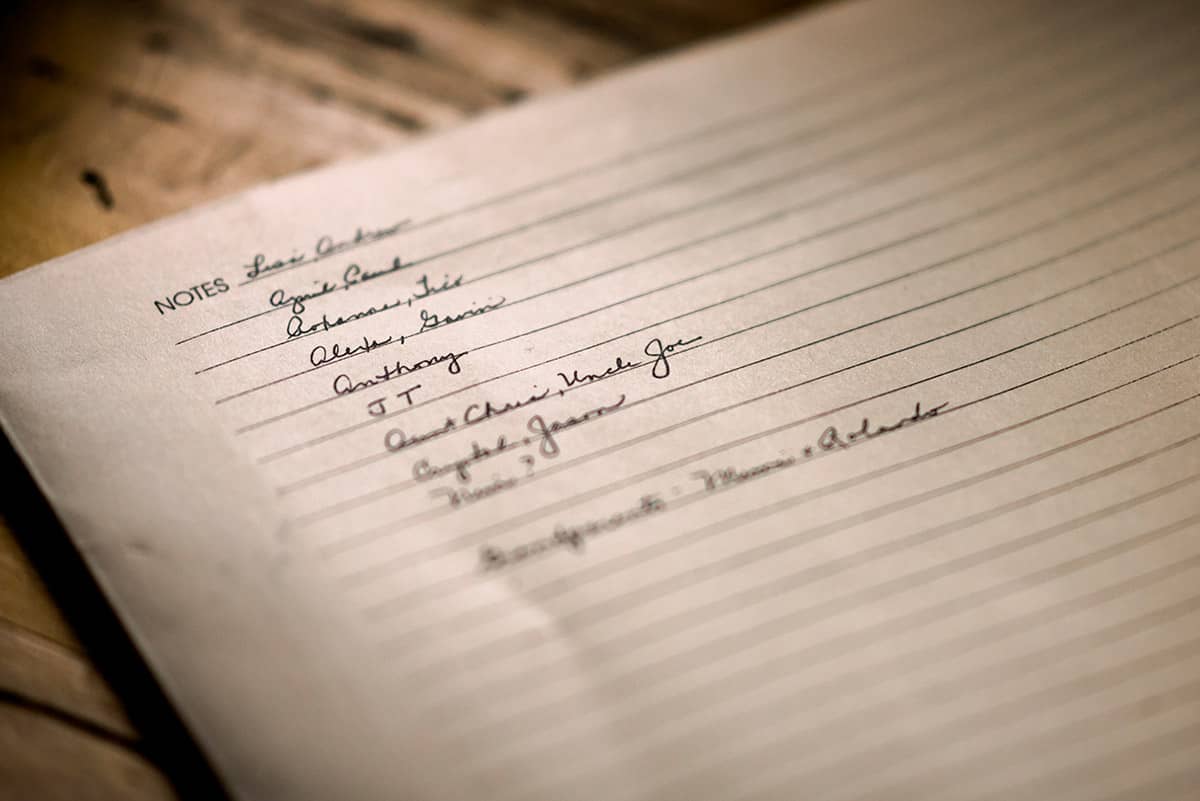 NOTES Lisi Andrew
April, Paul
Roxanne, Tris
Alexa, Gavin
Anthony
JT
Aunt Chris, Uncle Joe
Crystal, Jason
?
Grandparents - & Rolando